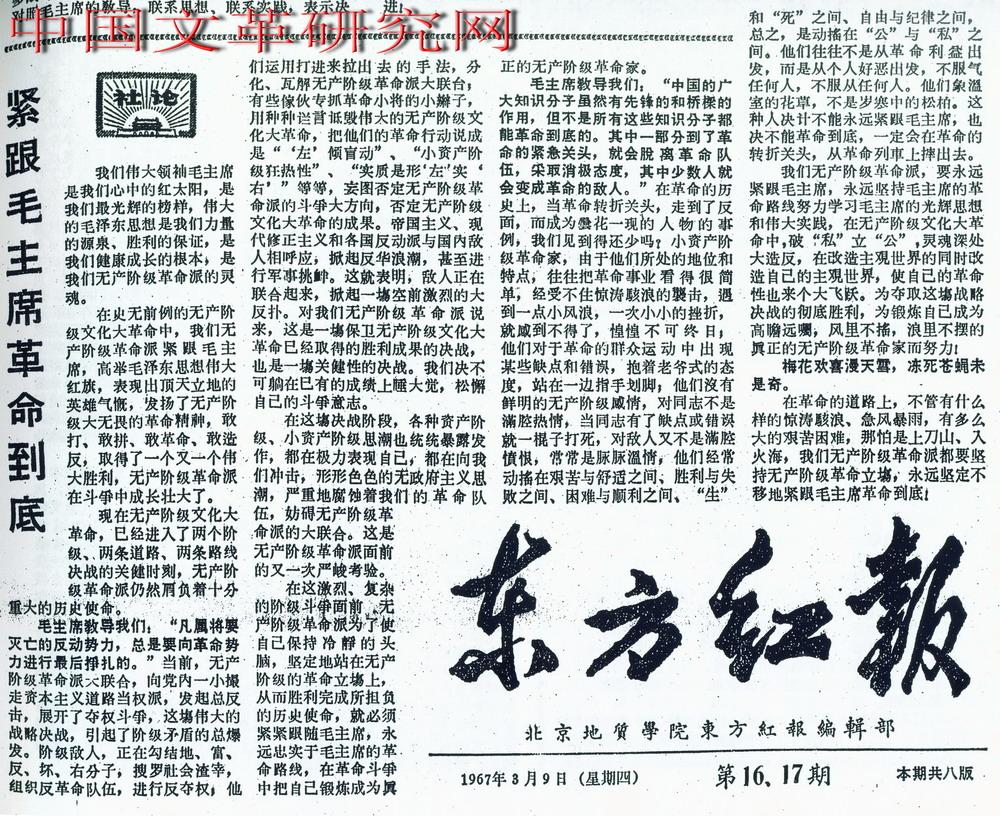 对照毛主席的教导，联系思想、联系实践，表示决
中国文革研究网
紧跟毛主席革命到底
社论
我们伟大领袖毛主席
是我们心中的红太阳，是
我们最光辉的榜样，伟大
的毛泽东思想是我们力量
的源泉、胜利的保证，是
我们健康成长的根本，是
我们无产阶级革命派的灵
魂。
在史无前例的无产阶
级文化大革命中，我们无
产阶级革命派紧跟毛主
席，高举毛泽东思想伟大
红旗，表现出顶天立地的
英雄气慨，发扬了无产阶
级大无畏的革命精神，敢
打、敢拼、敢革命、敢造
反，取得了一个又一个伟
大胜利，无产阶级革命派
在斗争中成长壮大了。
现在无产阶级文化大
革命，已经进入了两个阶
级、两条道路、两条路线
决战的关健时刻，无产阶
级革命派仍然肩负着十分
重大的历史使命。
毛主席教导我们：“凡属将要
灭亡的反动势力，总是要向革命势
力进行最后挣扎的。”当前，无产
阶级革命派大联合，向党内一小撮
走资本主义道路当权派，发起总反
击，展开了夺权斗争，这場伟大的
战略决战，引起了阶级矛盾的总爆
发。阶级敌人，正在勾结地、富、
反、坏、右分子，搜罗社会渣宰，
组织反革命队伍，进行反夺权；他
们运用打进来拉出去的手法，分
化、瓦解无产阶级革命派大联合；
有些傢伙专抓革命小将的小辮子，
用种种谰言詆毁伟大的无产阶级文
化大革命，把他们的革命行动说成
是“‘左’倾盲动”、“小资产阶
级狂热性”、“实质是形‘左’实‘
右’”等等，妄图否定无产阶级革
命派的斗争大方向，否定无产阶级
文化大革命的成果。帝国主义、现
代修正主义和各国反动派与国内敌
人相呼应，掀起反华浪潮，甚至进
行军事挑衅。这就表明，敌人正在
联合起来，掀起一場空前激烈的大
反扑。对我们无产阶级革命派说
来，这是一場保卫无产阶级文化大
革命已经取得的胜利成果的决战，
也是一場关健性的决战。我们决不
可躺在已有的成绩上睡大觉，松懈
自己的斗争意志。
在这場决战阶段，各种资产阶
级、小资产阶级思潮也统统暴露发
作，都在极力表现自己，都在向我
们冲击，形形色色的无政府主义思
潮，严重地腐蚀着我们的革命队
伍，妨碍无产阶级革
命派的大联合。这是
无产阶级革命派面前
的又一次严峻考验。
在这激烈、复杂
的阶级斗争面前，无
产阶级革命派为了使
自己保持冷静的头
脑，坚定地站在无产
阶级的革命立場上，
从而胜利完成所担负
的历史使命，就必须
紧紧跟随毛主席，永
远忠实于毛主席的革
命路线，在革命斗争
中把自己锻炼成为真
正的无产阶级革命家。
毛主席教导我们：“中国的广
大知识分子虽然有先锋的和桥樑的
作用，但不是所有这些知识分子都
能革命到底的。其中一部分到了革
命的紧急关头，就会脱离革命队
伍，采取消极态度，其中少数人就
会变成革命的敌人。”在革命的历
史上，当革命转折关头，走到了反
面，而成为曇花一现的人物的事
例，我们见到得还少吗？小资产阶
级革命家，由于他们所处的地位和
特点，往往把革命事业看得很简
单，经受不住惊涛骇浪的襲击，遇
到一点小风浪，一次小小的挫折，
就感到不得了，惶惶不可终日；
他们对于革命的群众运动中出现
某些缺点和错误，抱着老爷式的态
度，站在一边指手划脚；他们没有
鲜明的无产阶级感情，对同志不是
滿腔热情，当同志有了缺点或错误
就一棍子打死，对敌人又不是滿腔
憤恨，常常是脉脉溫情；他们经常
动搖在艰苦与舒适之间、胜利与失
败之间、困难与顺利之间、“生”
和“死”之间、自由与纪律之间，
总之，是动搖在“公”与“私”之
间。他们往往不是从革命利益出
发，而是从个人好恶出发，不服气
任何人，不服从任何人。他们象溫
室的花草，不是岁寒中的松柏。这
种人决计不能永远紧跟毛主席，也
决不能革命到底，一定会在革命的
转折关头，从革命列車上摔出去。
我们无产阶级革命派，要永远
紧跟毛主席，永远坚持毛主席的革
命路线努力学习毛主席的光辉思想
和伟大实践，在无产阶级文化大革
命中，破“私”立“公”，灵魂深处
大造反，在改造主观世界的同时改
造自己的主观世界，使自己的革命
性也来个大飞跃。为夺取这場战略
决战的彻底胜利，为锻炼自己成为
高瞻远矚，风里不搖，浪里不摆的
真正的无产阶级革命家而努力！
梅花欢喜漫天雪，冻死苍蝇未
足奇。
在革命的道路上，不管有什么
样的惊涛骇浪、急风暴雨，有多么
大的艰苦困难，那怕是上刀山、入
火海，我们无产阶级革命派都要坚
持无产阶级革命立場，永远坚定不
移地紧跟毛主席革命到底！
东方红报
北京地質學院東方紅報編輯部
1967年3月9日（星期四）
第16、17期
本期共八版